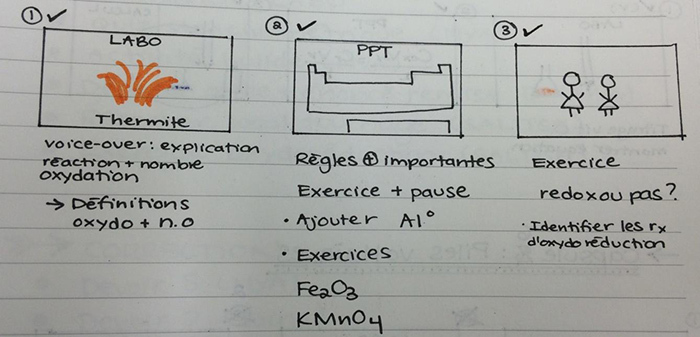 ① ✓
LABO
Thermite
voice-over: explication
réaction + nombre
oxydation
→ Définitions
oxydo + n.o
② ✓
PPT
Règles ⊕ importantes
Exercice + pause
• Ajouter Al°
• Exercices
Fe₂O₃
KMnO₄
③ ✓
Exercice
redox ou pas?
• Identifier les rx
d'oxydoréduction